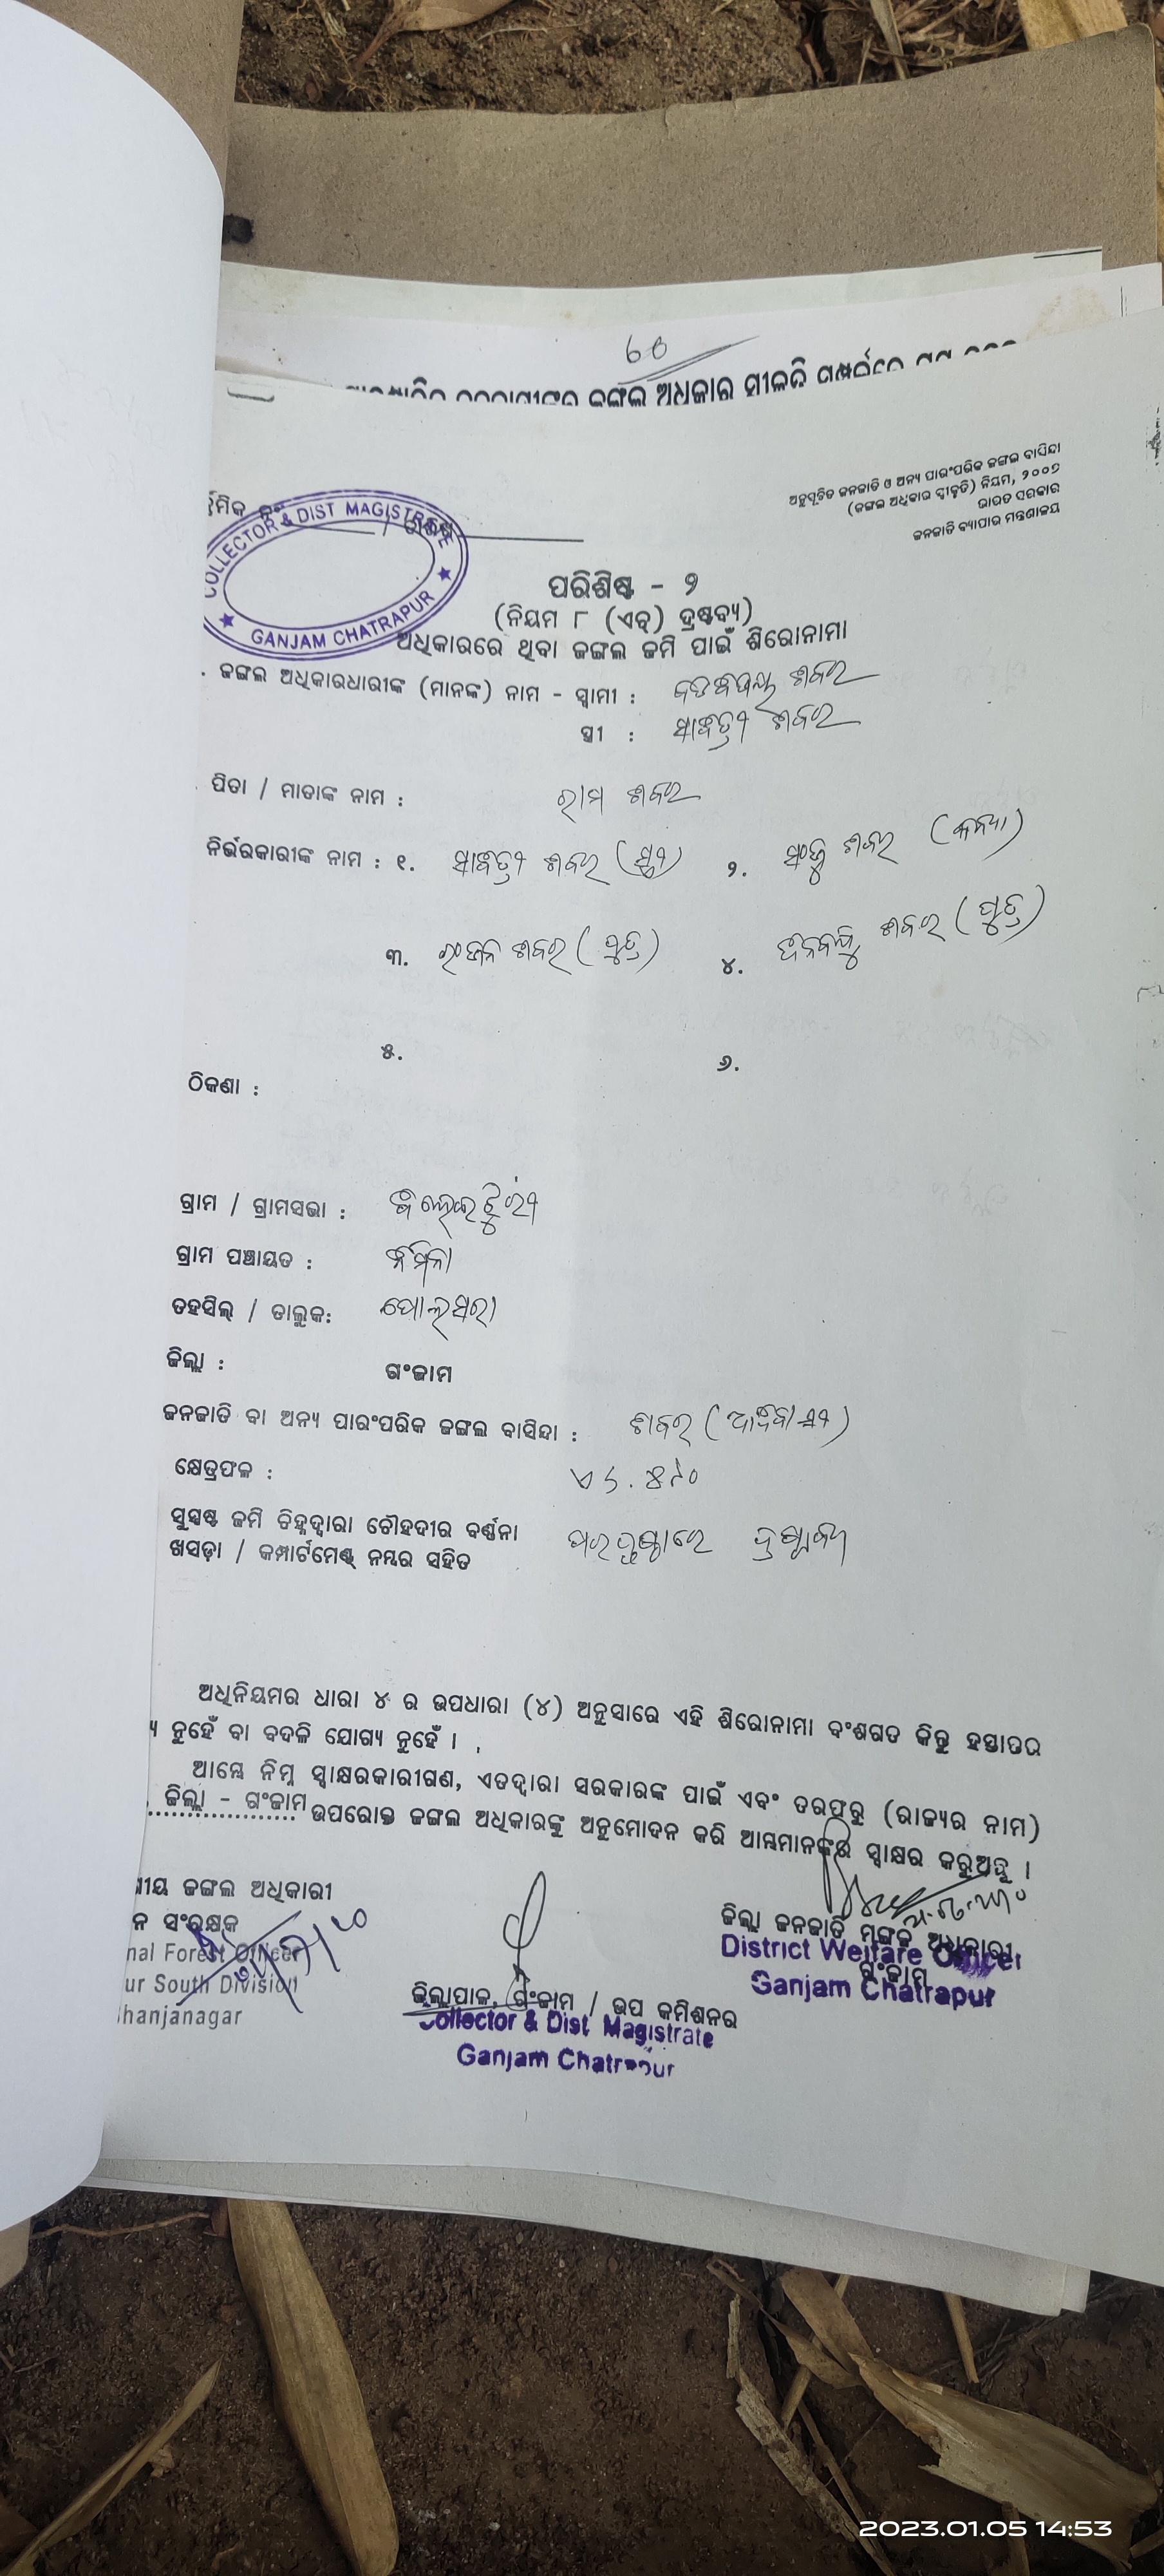 60
ଜଙ୍ଗଲ ଅଧିକାର
ଅନୁସୂଚିତ ଜନଜାତି ଓ ଅନ୍ୟ ପାରଂପରିକ ଜଙ୍ଗଲ ବାସିନ୍ଦା
(ଜଙ୍ଗଲ ଅଧିକାର ସ୍ୱୀକୃତି) ନିୟମ, ୨୦୦୭
ଭାରତ ସରକାର
ଜନଜାତି ବ୍ୟାପାର ମନ୍ତ୍ରଣାଳୟ
COLLECTOR & DIST MAGISTRATE
GANJAM CHATRAPUR
ପରିଶିଷ୍ଟ - ୨
(ନିୟମ ୮ (ଏଚ୍) ଦ୍ରଷ୍ଟବ୍ୟ)
ଅଧିକାରରେ ଥିବା ଜଙ୍ଗଲ ଜମି ପାଇଁ ଶିରୋନାମା
ଜଙ୍ଗଲ ଅଧିକାରଧାରୀଙ୍କ (ମାନଙ୍କ) ନାମ - ସ୍ୱାମୀ : ଶବର
ସ୍ତ୍ରୀ : ଶବର
ପିତା / ମାତାଙ୍କ ନାମ : ରାମ ଶବର
ନିର୍ଭରକାରୀଙ୍କ ନାମ : ୧. ଶବର (ସ୍ତ୍ରୀ) ୨. ଶବର (କନ୍ୟା)
୩. ରଂଜନ ଶବର (ପୁତ୍ର) ୪. ଦିନବନ୍ଧୁ ଶବର (ପୁତ୍ର)
୫. ୬.
ଠିକଣା :
ଗ୍ରାମ / ଗ୍ରାମସଭା :
ଗ୍ରାମ ପଞ୍ଚାୟତ :
ତହସିଲ୍ / ତାଲୁକ: ପୋଲସରା
ଜିଲ୍ଲା : ଗଂଜାମ
ଜନଜାତି ବା ଅନ୍ୟ ପାରଂପରିକ ଜଙ୍ଗଲ ବାସିନ୍ଦା : ଶବର (ଆଦିବାସୀ)
କ୍ଷେତ୍ରଫଳ :
ସୁସ୍ପଷ୍ଟ ଜମି ଚିହ୍ନଦ୍ୱାରା ଚୌହଦୀର ବର୍ଣ୍ଣନା ପରପୃଷ୍ଠାରେ ଦ୍ରଷ୍ଟବ୍ୟ
ଖସଡ଼ା / କମ୍ପାର୍ଟମେଣ୍ଟ୍ ନମ୍ବର ସହିତ
ଅଧିନିୟମର ଧାରା ୪ ର ଉପଧାରା (୪) ଅନୁସାରେ ଏହି ଶିରୋନାମା ବଂଶଗତ କିନ୍ତୁ ହସ୍ତାନ୍ତର
ନୁହେଁ ବା ବଦଳି ଯୋଗ୍ୟ ନୁହେଁ ।
ଆମ୍ଭେ ନିମ୍ନ ସ୍ୱାକ୍ଷରକାରୀଗଣ, ଏତଦ୍ୱାରା ସରକାରଙ୍କ ପାଇଁ ଏବଂ ତରଫରୁ (ରାଜ୍ୟର ନାମ)
ଜିଲ୍ଲା - ଗଂଜାମ ଉପରୋକ୍ତ ଜଙ୍ଗଲ ଅଧିକାରଙ୍କୁ ଅନୁମୋଦନ କରି ଆମ୍ଭମାନଙ୍କର ସ୍ୱାକ୍ଷର କରୁଅଛୁ ।
ଜଙ୍ଗଲ ଅଧିକାରୀ
ସଂରକ୍ଷକ
Forest Officer
South Division
ଜିଲ୍ଲାପାଳ, ଗଂଜାମ / ଉପ କମିଶନର
Collector & Dist Magistrate
Ganjam Chatrapur
ଜିଲ୍ଲା ଜନଜାତି ମଙ୍ଗଳ ଅଧିକାରୀ
ଗଂଜାମ
District Welfare Officer
Ganjam Chatrapur
2023.01.05 14:53